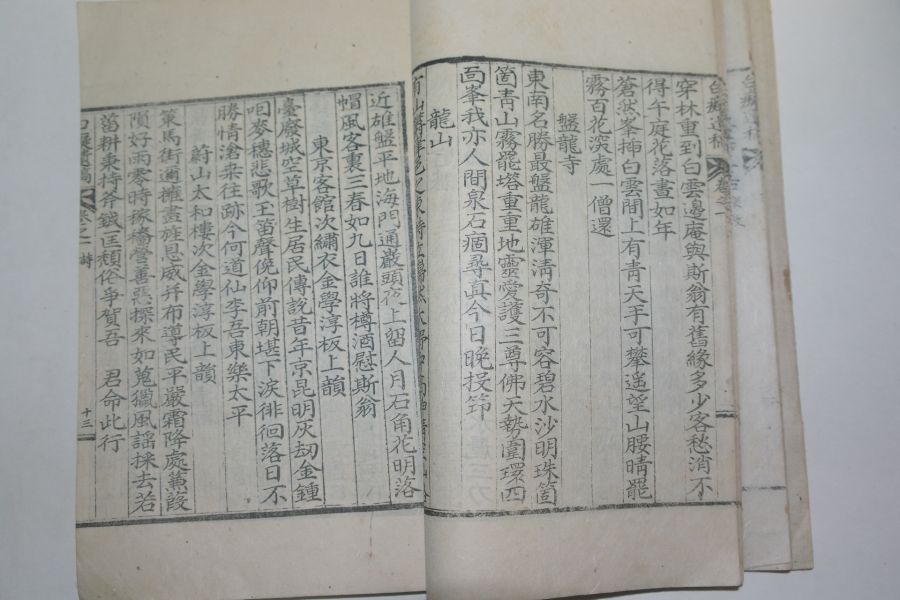 穿林重到白雲邊庵與斯翁有舊緣多少客愁消不
得午庭花落晝如年
蒼然峯揷白雲間上有靑天手可攀遙望山腰晴罷
霧百花深處一僧還
盤龍寺
東南名勝最盤龍雄渾淸奇不可容碧水沙明珠箇
箇靑山霧罷塔重重地靈愛護三尊佛天勢圍環四
面峯我亦人間泉石痼尋眞今日晩投笻
龍山
近雄盤平地海門通巖頭夜上留人月石角花明落
帽風客裏三春如九日誰將樽酒慰斯翁
東京客館次繡衣金學淳板上韻
臺廢城空草樹生居民傳說昔年京昆明灰刧金鍾
咽麥穗悲歌玉笛聲俛仰前朝堪下淚徘徊落日不
勝情滄桑往跡今何道仙李吾東樂太平
蔚山太和樓次金學淳板上韻
策馬街逋擁畫旌恩威幷布導民平嚴霜降處蒹葭
隕好雨零時稼穡營善惡探來如蒐獵風謠採去若
菑耕秉持斧鉞匡頹俗爭賀吾 君命此行
卷之一 詩
十三